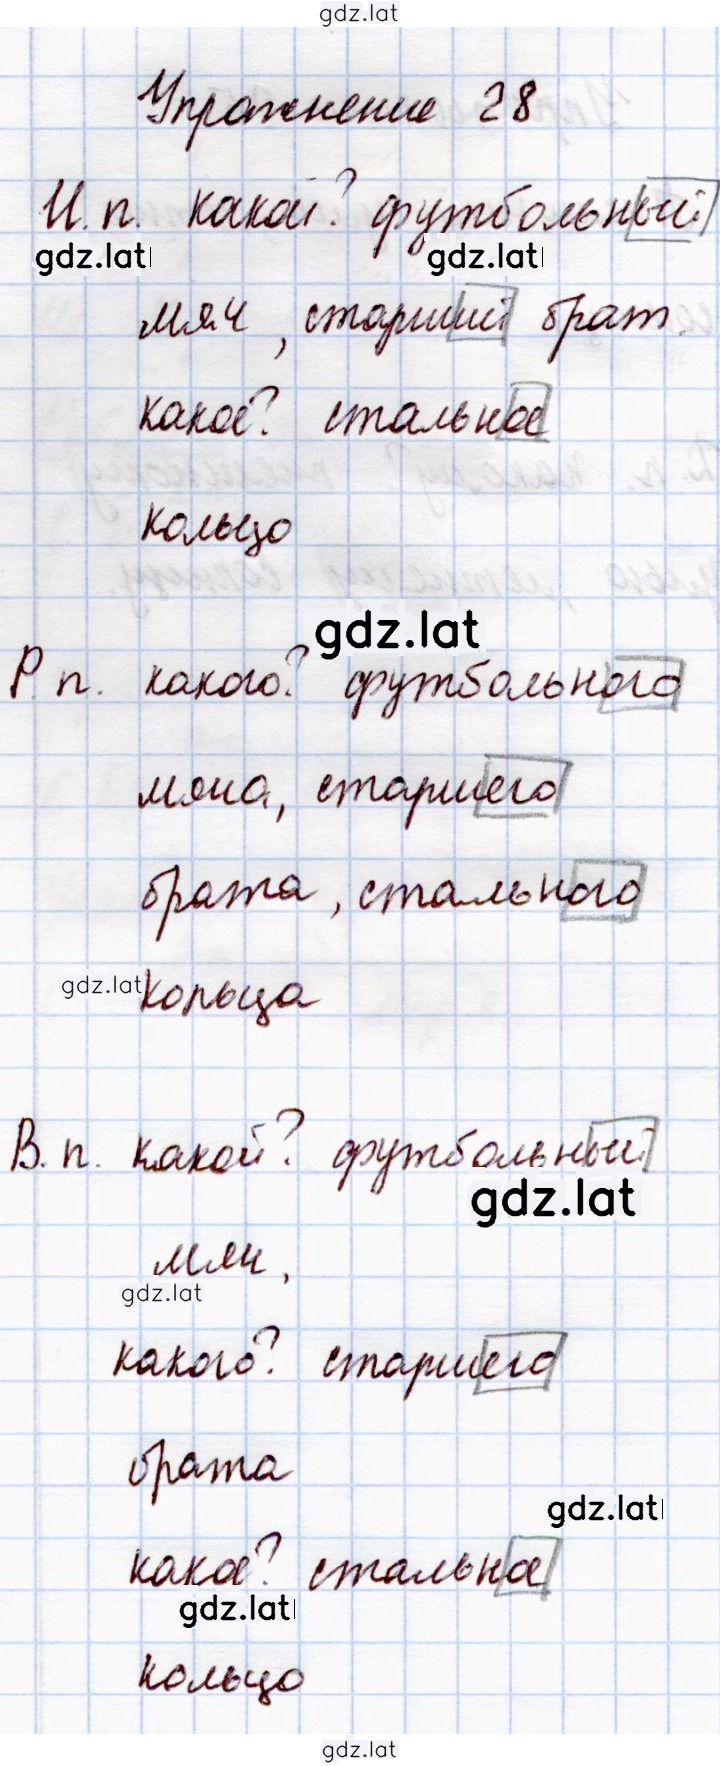 gdz.lat
Упражнение 28
И. п. какой? футбольный
gdz.lat gdz.lat
мяч, старший брат
какое? стальное
кольцо
gdz.lat
Р. п. какого? футбольного
мяча, старшего
брата, стального
gdz.lat кольца
В. п. какой? футбольный
gdz.lat
мяч,
gdz.lat
какого? старшего
брата
gdz.lat
какое? стальное
gdz.lat
кольцо
gdz.lat